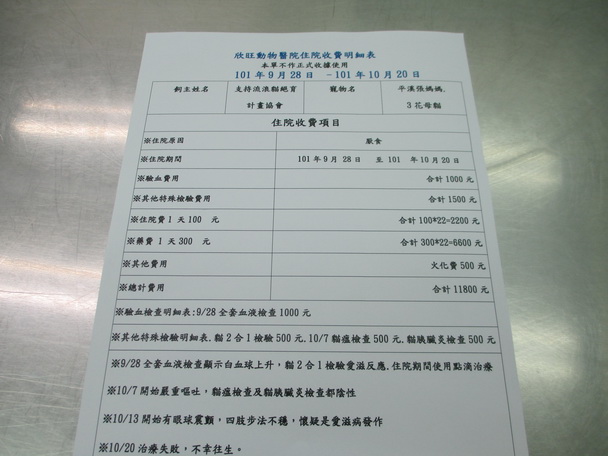 欣旺動物醫院住院收費明細表
本單不作正式收據使用
101 年 9 月 28 日 -101 年 10 月 20 日
飼主姓名 支持流浪貓絕育計畫協會 寵物名 平溪張媽媽.3 花母貓
住院收費項目
※住院原因 厭食
※住院期間 101 年 9 月 28 日 至 101 年 10 月 20 日
※驗血費用 合計 1000 元
※其他特殊檢驗費用 合計 1500 元
※住院費 1 天 100 元 合計 100*22=2200 元
※藥費 1 天 300 元 合計 300*22=6600 元
※其他費用 火化費 500 元
※總計費用 合計 11800 元
※驗血檢查明細表:9/28 全套血液檢查 1000 元
※其他特殊檢驗明細表.貓 2 合 1 檢驗 500 元.10/7 貓瘟檢查 500 元.貓胰臟炎檢查 500 元
※9/28 全套血液檢查顯示白血球上升，貓 2 合 1 檢驗愛滋反應.住院期間使用點滴治療
※10/7 開始嚴重嘔吐，貓瘟檢查及貓胰臟炎檢查都陰性
※10/13 開始有眼球震顫，四肢步法不穩，懷疑是愛滋病發作
※10/20 治療失敗，不幸往生。